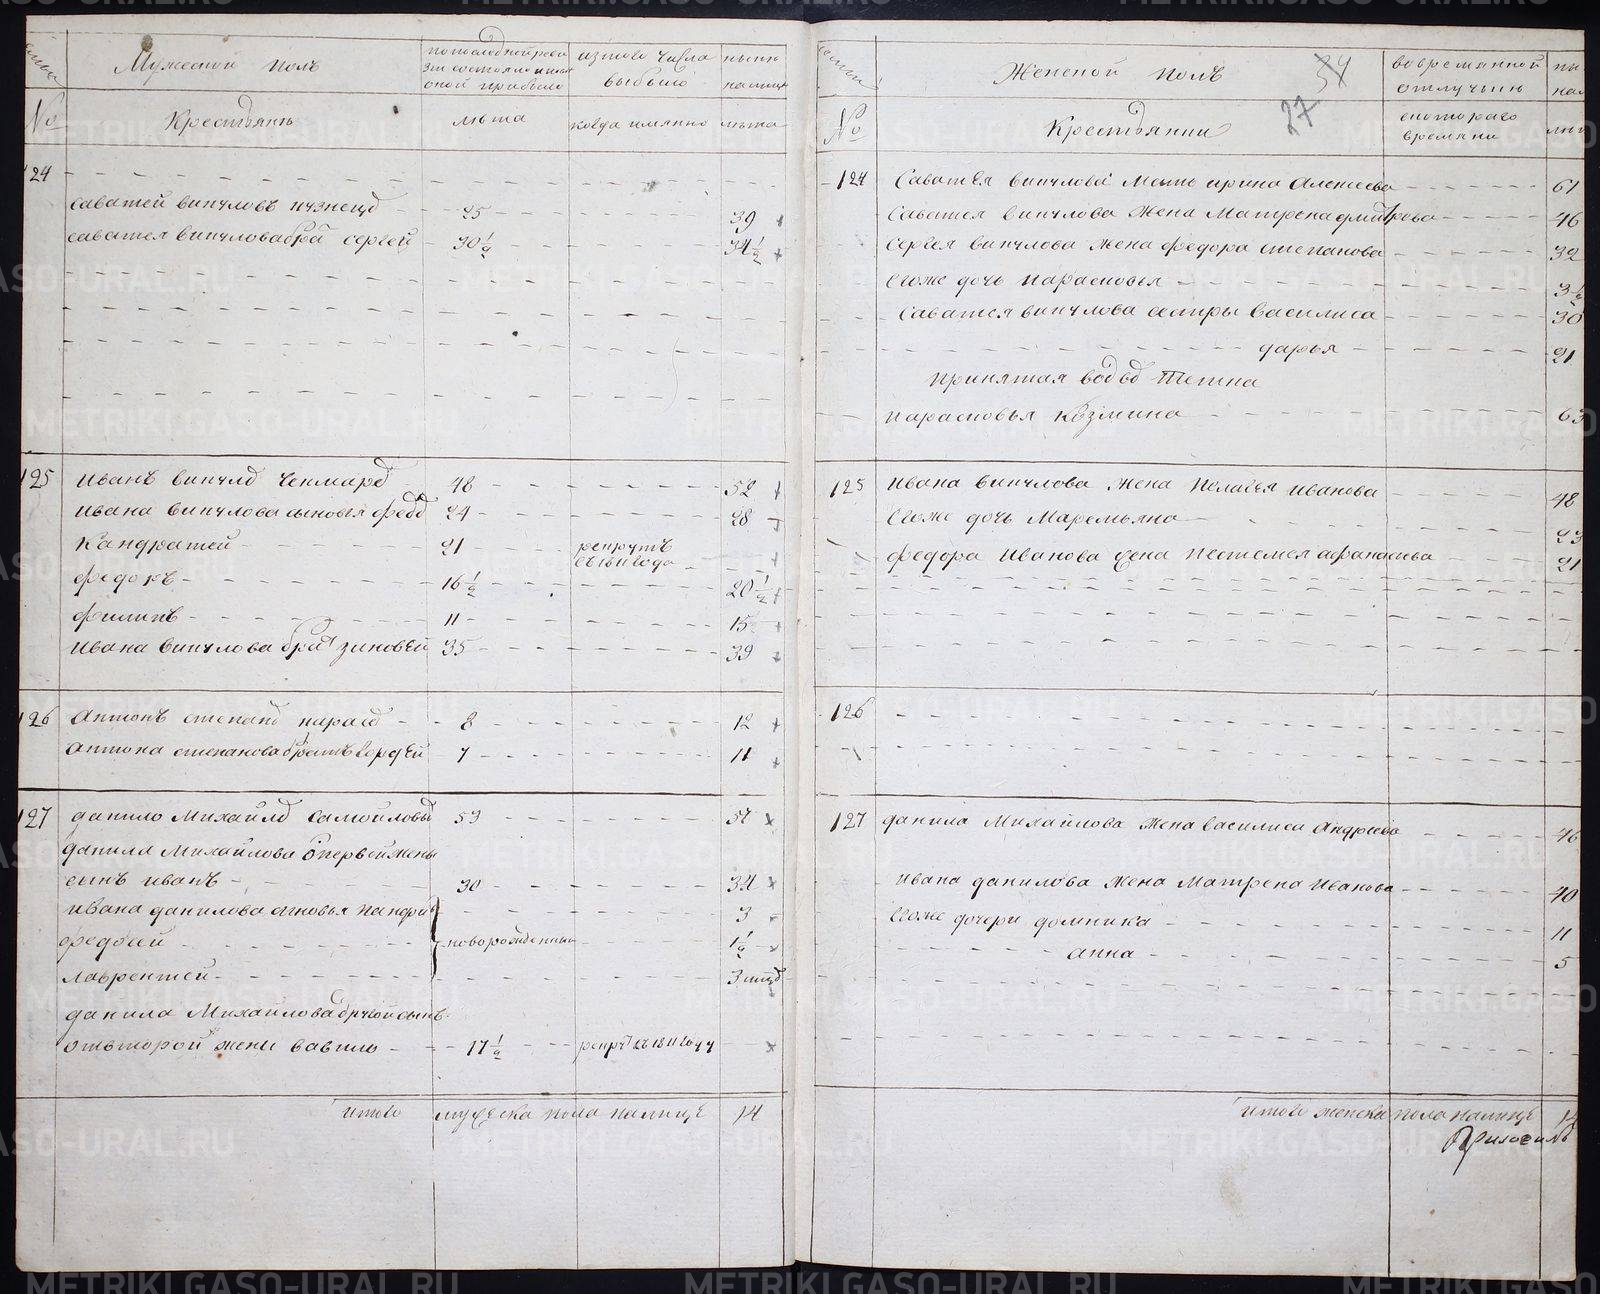 Мужеской полъ
по последней реви
зiи состояло и пос
оной прибыло
изтово числа
выбыло
ныне
налицо
№
Крестьянъ
лѣта
когда имянно
лѣта
124
саватей викуловъ
25
39
саватея викулова бра сергей
30 1/2
34 1/2
125
Иванъ викулд
48
52
Ивана викулова сыновья фед
24
28
Кандратей
21
рекрутъ
въ 1811 года
федоръ
16 1/2
20 1/2
филипъ
11
15
Ивана викулова бра зиновей
35
39
126
Антонъ степанд
8
12
Антона степанова братъ гордей
7
11
127
данило Михайлд Самойловы
53
57
данила Михайлова от первой жены
сынъ иванъ
30
34
ивана данилова сыновья
3
федосей
новорожденны
1 1/2
лаврентей
3
данила Михайлова другой сынъ
отвторой жены вавило
17 1/2
рекру въ 1811 году
итого мужеска пола налице 14
Женской полъ
34
37
вовремянной
отлучьки
№
Крестьянки
скоторого
времяни
124
Саватея викулова мать ирина Алексеева
67
Саватея викулова жена Матрена дмитрева
46
Сергея викулова жена федора степанова
32
Егоже дочь парасковья
3 1/2
Саватея викулова сестры василиса
30
дарья
21
принятая
парасковья Козмина
63
125
Ивана викулова жена Пелагея иванова
48
Егоже дочь Маремьяна
23
федора Иванова жена афанасьева
21
126
127
данила Михайлова жена василиса Андреева
46
ивана данилова жена Матрена Иванова
40
Егоже дочери домника
11
анна
5
итого женска пола налице
METRIKI.GASO-URAL.RU